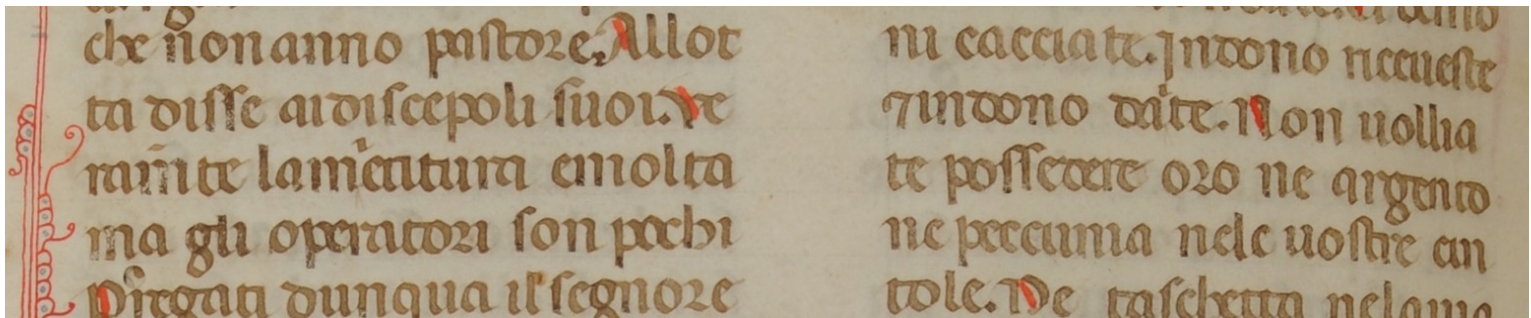 che non anno pastore. Allot
ta disse ai discepoli suoi. Ve
ram̄te la meatitura e molta
ma gli operatori son pochi
Pregati dunqua il segnore
ni cacciate. In dono riceueste
⁊ in dono date. Non uollia
te possedere oro ne argento
ne peccunia nele uostre cin
tole. Ne taschetta nela uia